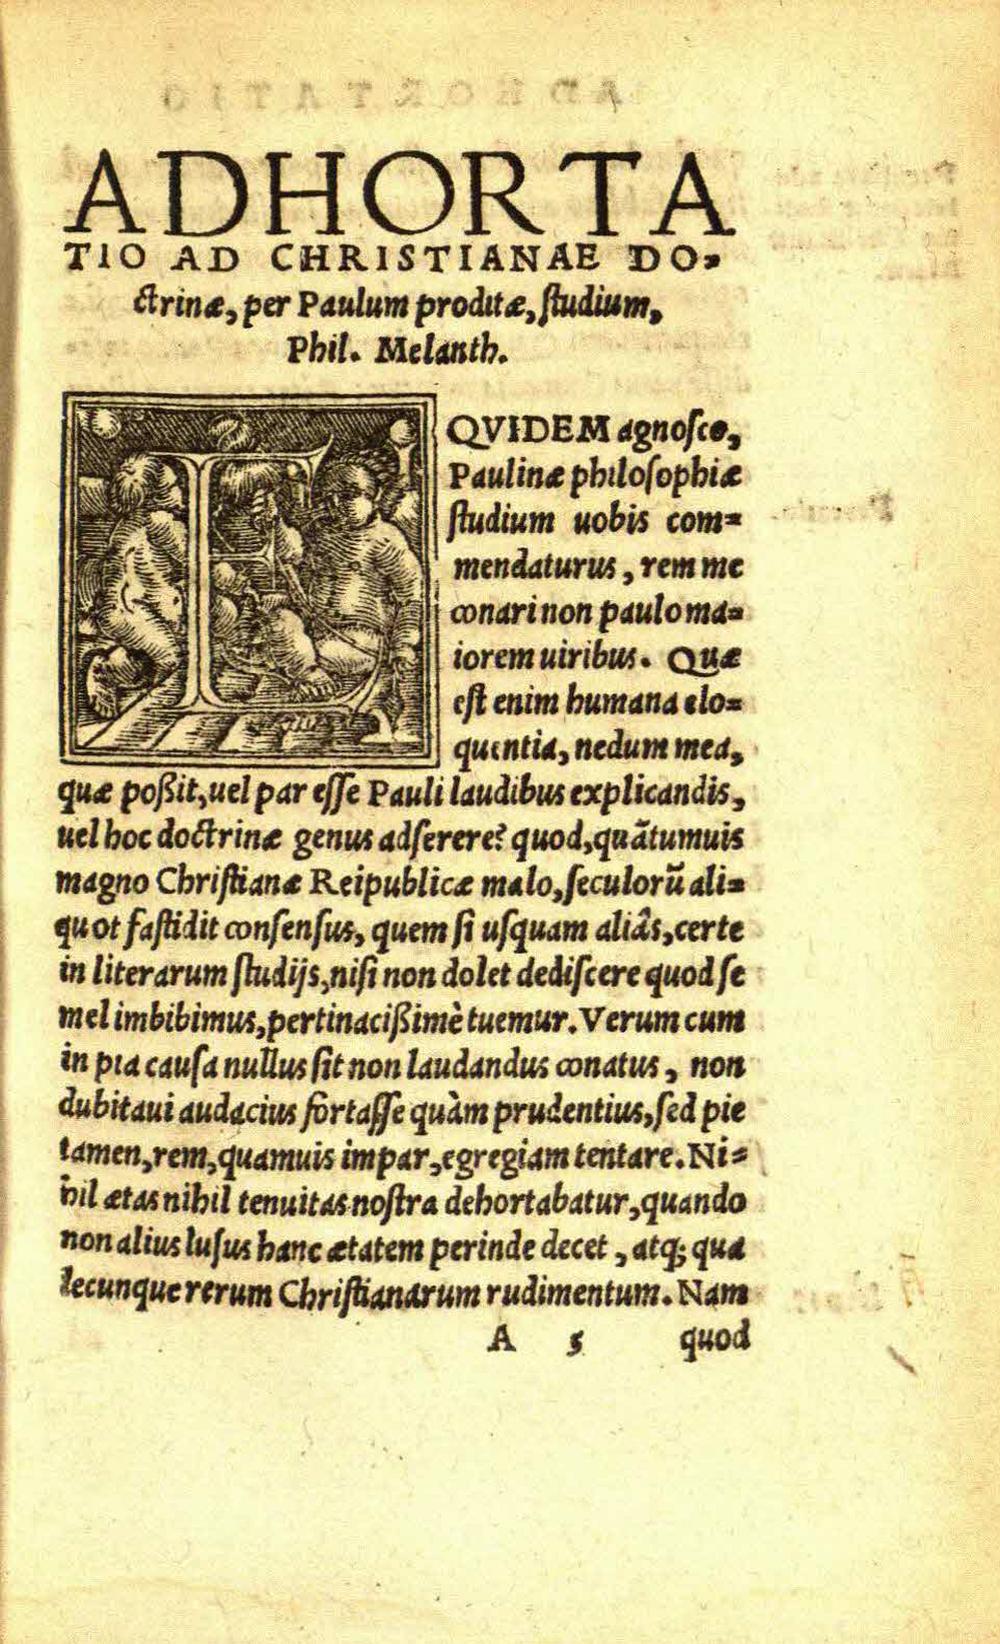 ADHORTA
TIO AD CHRISTIANAE DO-
ctrinæ, per Paulum proditæ, ſtudium,
Phil. Melanth.
EQVIDEM agnoſco,
Paulinæ philoſophiæ
ſtudium uobis com=
mendaturus, rem me
conari non paulo ma=
iorem uiribus. Quæ
eſt enim humana elo=
quentia, nedum mea,
quæ poßit, uel par eſſe Pauli laudibus explicandis,
uel hoc doctrinæ genus adſerere? quod, quãtumuis
magno Chriſtianæ Reipublicæ malo, ſeculorũ ali=
quot faſtidit conſenſus, quem ſi uſquam aliâs, certe
in literarum ſtudijs, niſi non dolet dediſcere quod ſe
mel imbibimus, pertinacißimè tuemur. Verum cum
in pia cauſa nullus ſit non laudandus conatus, non
dubitaui audacius fortaſſe quàm prudentius, ſed pie
tamen, rem, quamuis impar, egregiam tentare. Ni=
hil ætas nihil tenuitas noſtra dehortabatur, quando
non alius luſus hanc ætatem perinde decet, atq; qua
lecunque rerum Chriſtianarum rudimentum. Nam
A 5 quod